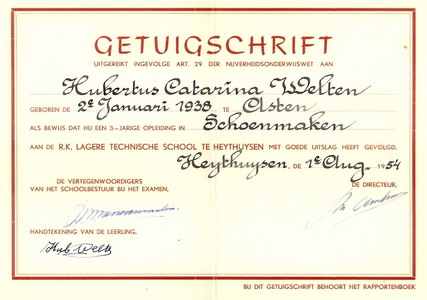 GETUIGSCHRIFT
UITGEREIKT INGEVOLGE ART. 29 DER NIJVERHEIDSONDERWIJSWET AAN
Hubertus Catarina Welten
GEBOREN DE 2e Januari 1938 TE Asten
ALS BEWIJS DAT HIJ EEN 3-JARIGE OPLEIDING IN Schoenmaken
AAN DE R.K. LAGERE TECHNISCHE SCHOOL TE HEYTHUYSEN MET GOEDE UITSLAG HEEFT GEVOLGD.
Heythuysen, de 1e Aug. 1954
DE VERTEGENWOORDIGERS
VAN HET SCHOOLBESTUUR BIJ HET EXAMEN,
DE DIRECTEUR,
HANDTEKENING VAN DE LEERLING,
Hub Welten
BIJ DIT GETUIGSCHRIFT BEHOORT HET RAPPORTENBOEK